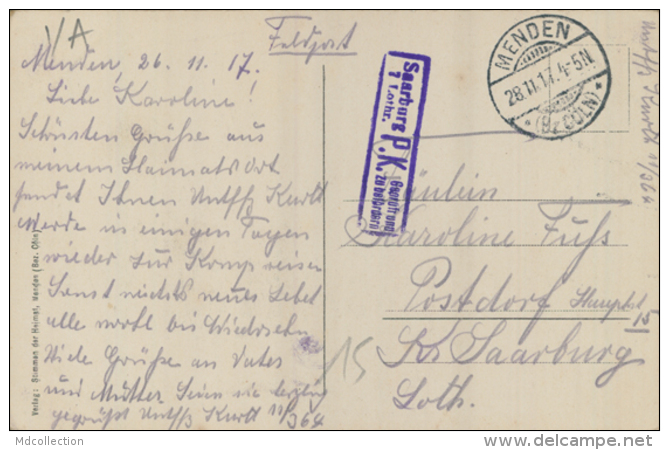 VA
Feldpost
Menden, 26. 11. 17.
Liebe Karoline!
Schönsten Grüße aus
meinem Heimats Ort
sendet Ihnen Untffz Kurtt
Werde in einigen Tagen
wieder zur Komp reisen
Sonst nichts neues Lebet
alle wohl bis Wiedersehn
Viele Grüße an Vater
und Mutter Seien sie herzlich
gegrüßt Untffz Kurtt 11/364
Verlag: Stimmen der Heimat, Menden (Bez. Cöln)
Saarburg
i. Lothr.
P.K.
Geprüft und
zu befördern
MENDEN
28.11.17. 4-5N
* (Bz CÖLN) *
Fräulein
Karoline Fuhs
Postdorf Hauptst
15
Kr Saarburg
Loth.
15
Untffz Kurtt 11/364
Mdcollection
delcampe.net